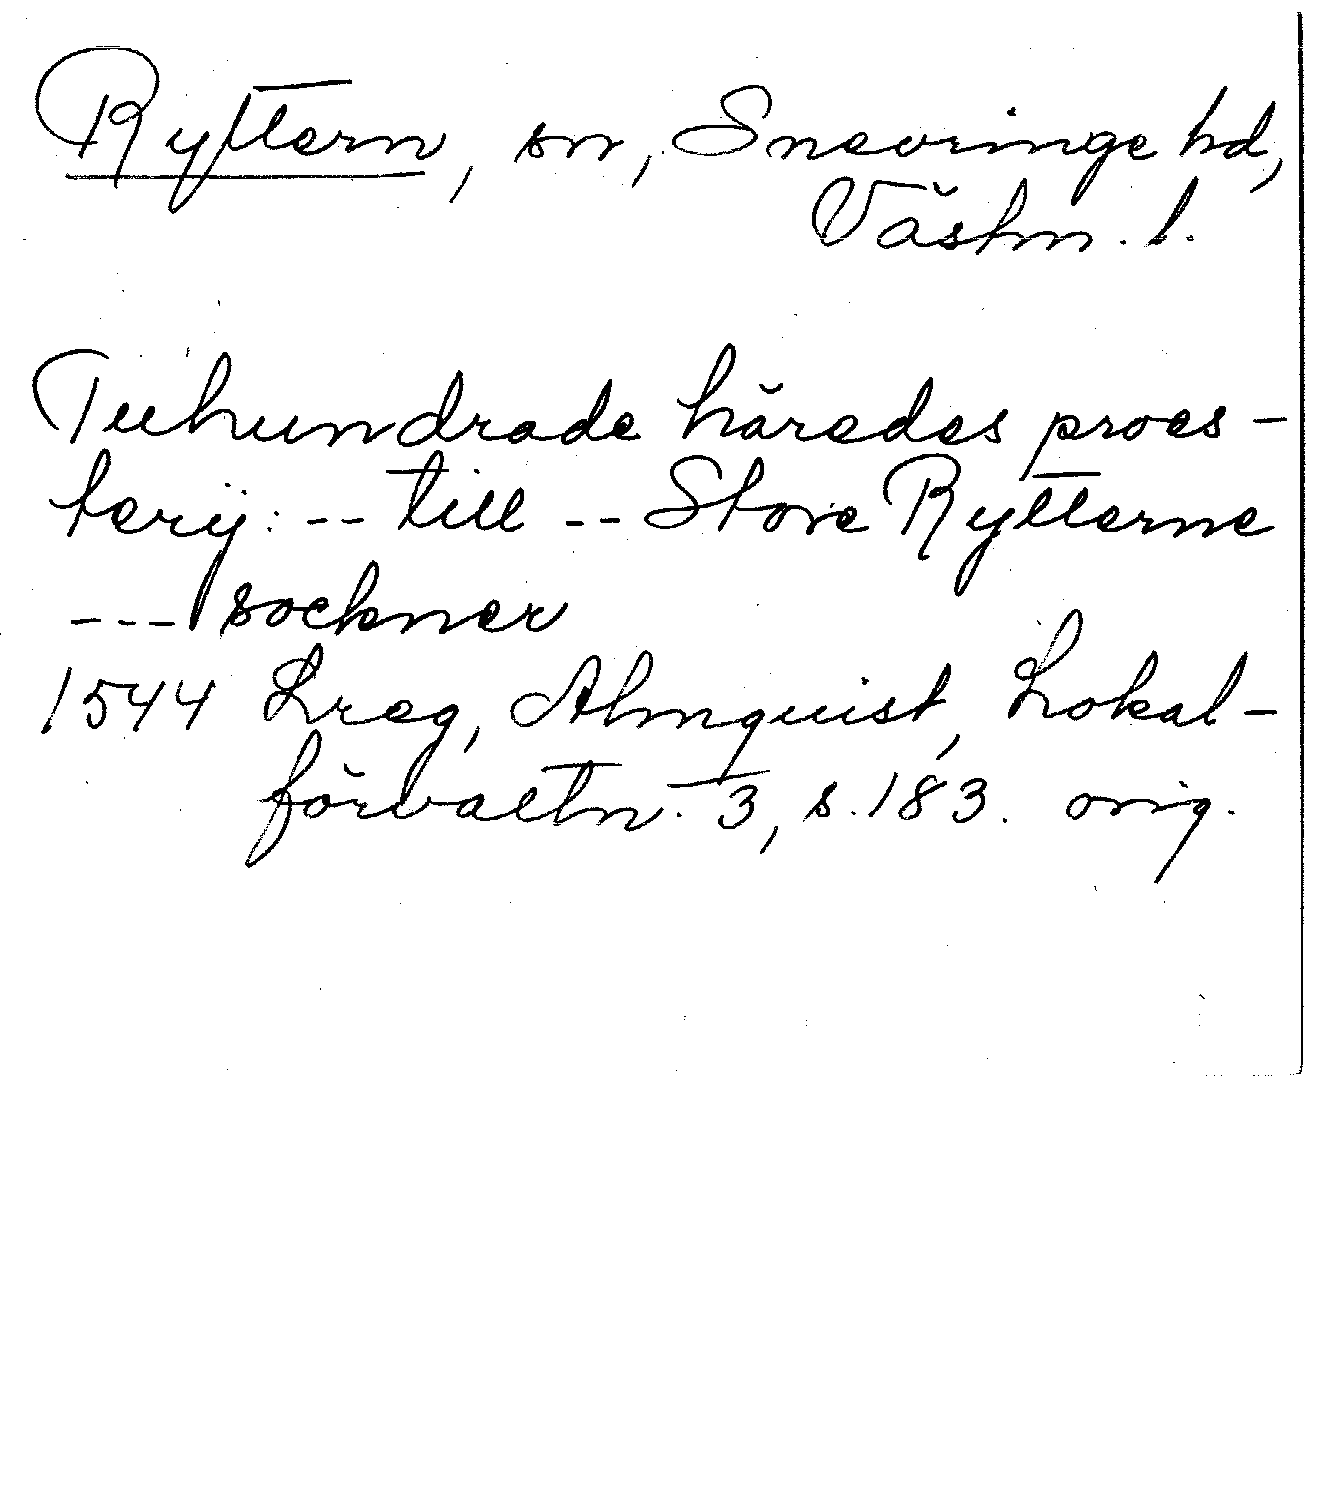 Ryttern, sn, Snevringe hd,
Västm. l.
Tuhundrade häredes proes-
terij: -- till -- Store Rytterne
--- sockner
1544 Lreg, Almquist, Lokal-
förvaltn. 3, s. 183. orig.